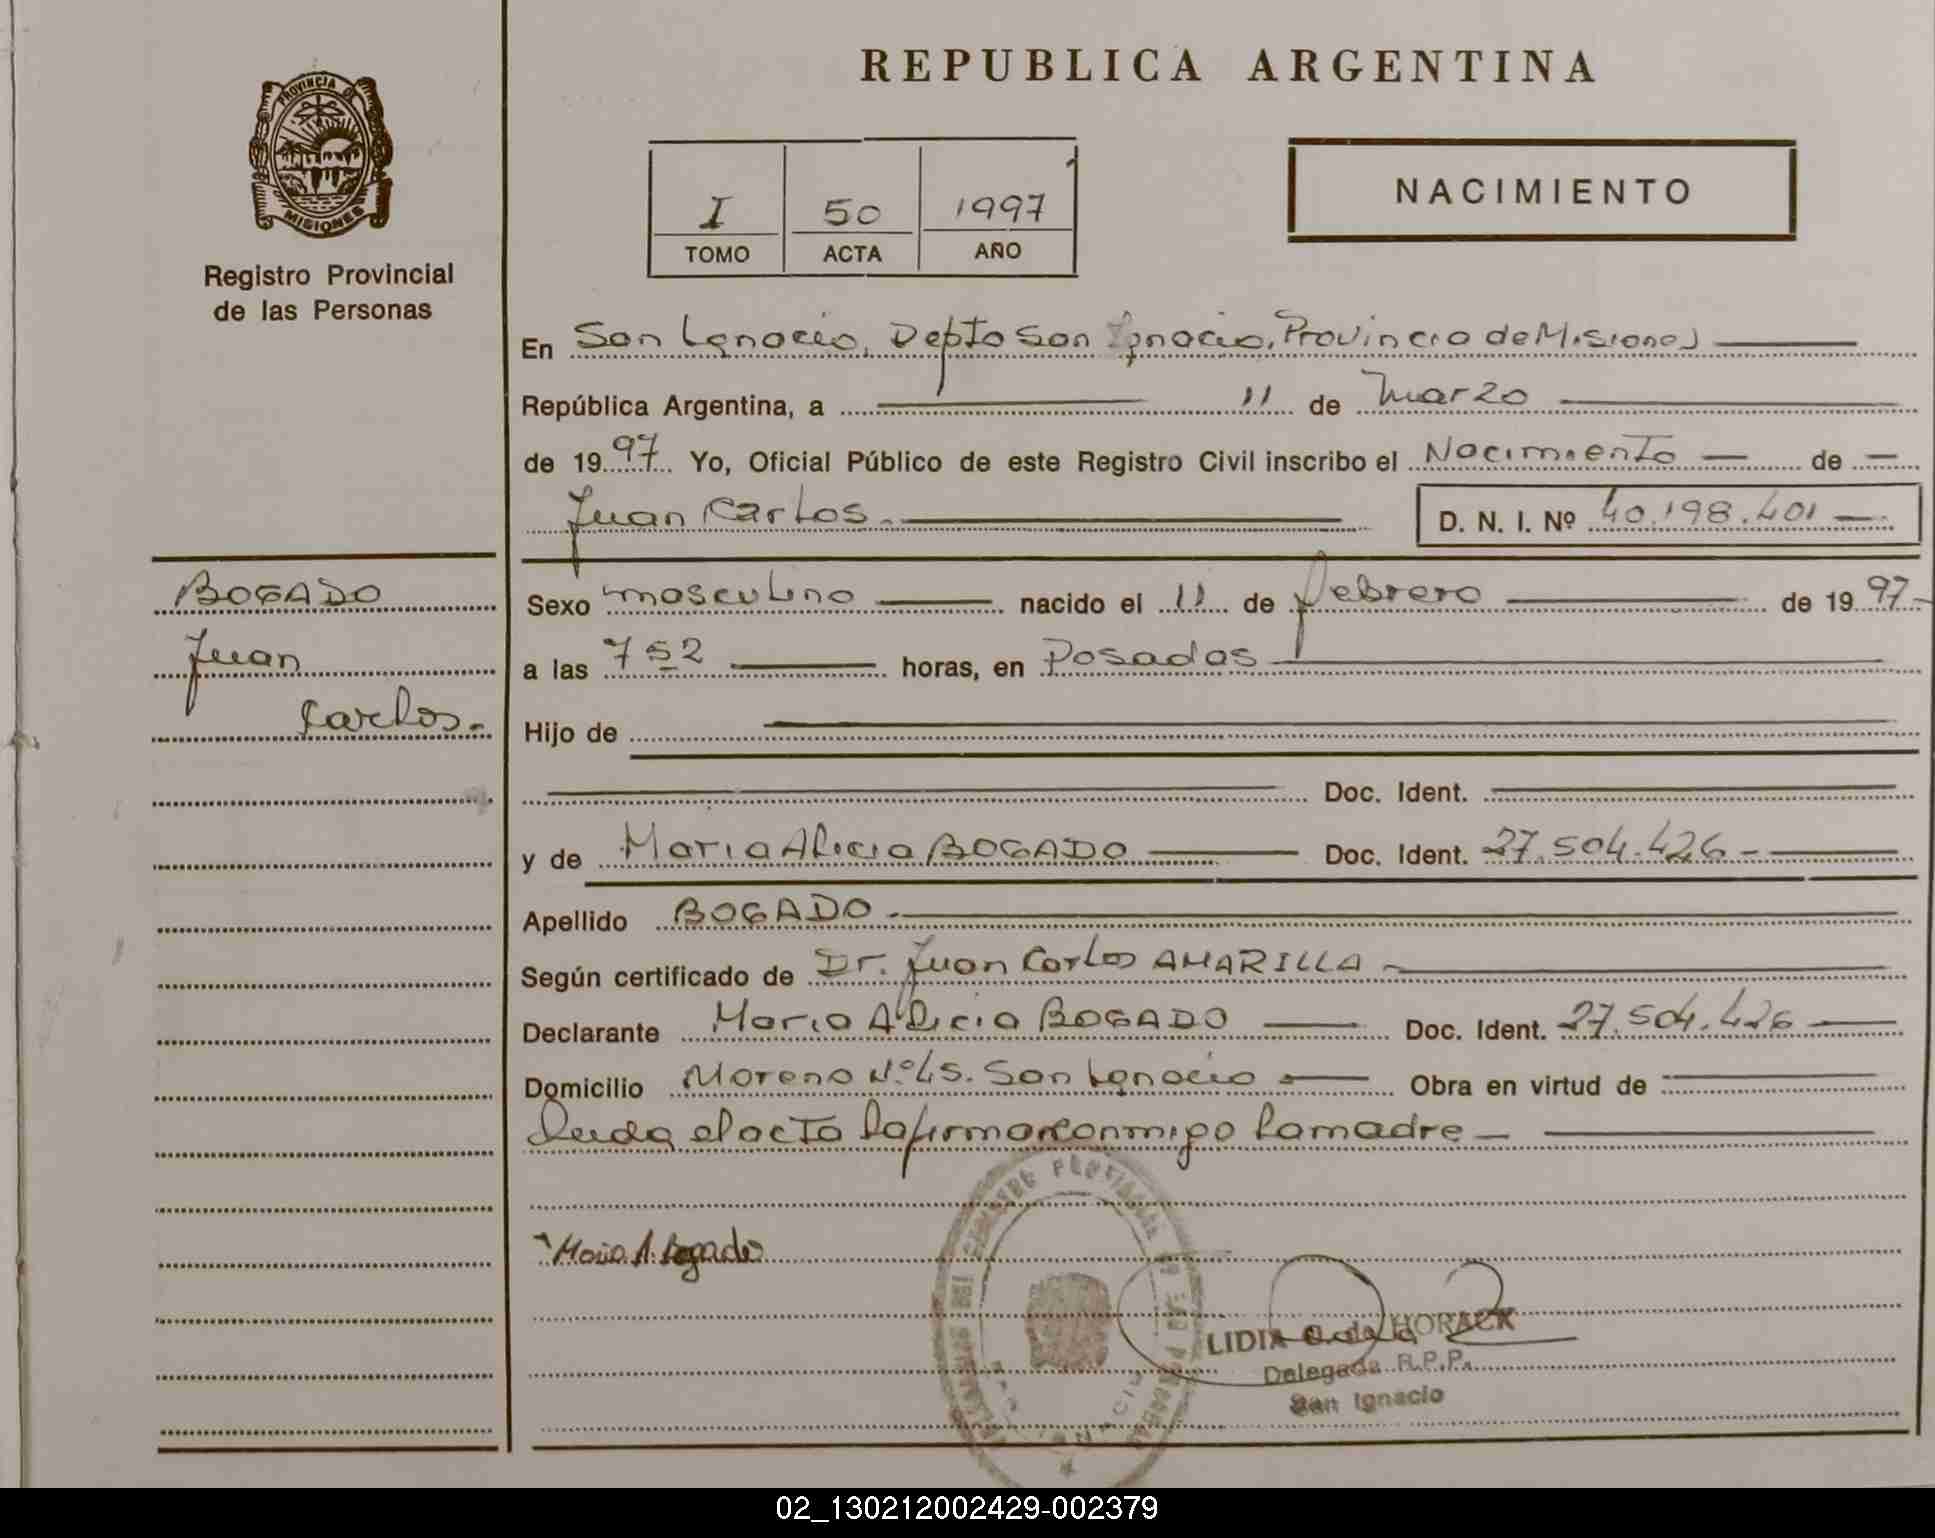 REPUBLICA ARGENTINA
PROVINCIA DE
MISIONES
Registro Provincial
de las Personas
I 50 1997
TOMO ACTA AÑO
NACIMIENTO
En San Ignacio, Depto San Ignacio, Provincia de Misiones
República Argentina, a 11 de Marzo
de 1997 Yo, Oficial Público de este Registro Civil inscribo el Nacimiento de
Juan Carlos. D. N. I. Nº 40.198.401
BOGADO
Juan
Carlos.-
Sexo masculino nacido el 11 de febrero de 1997
a las 7 52 horas, en Posadas
Hijo de
Doc. Ident.
y de Maria Alicia BOGADO Doc. Ident. 27.504.426
Apellido BOGADO.
Según certificado de Dr. Juan Carlos AMARILLA
Declarante Maria Alicia BOGADO Doc. Ident. 27.504.426
Domicilio Moreno Nº 45. San Ignacio Obra en virtud de
Leida el acta la firma conmigo la madre
Maria A. Bogado
LIDIA HORACK
Delegada R.P.P.
San Ignacio
02_130212002429-002379